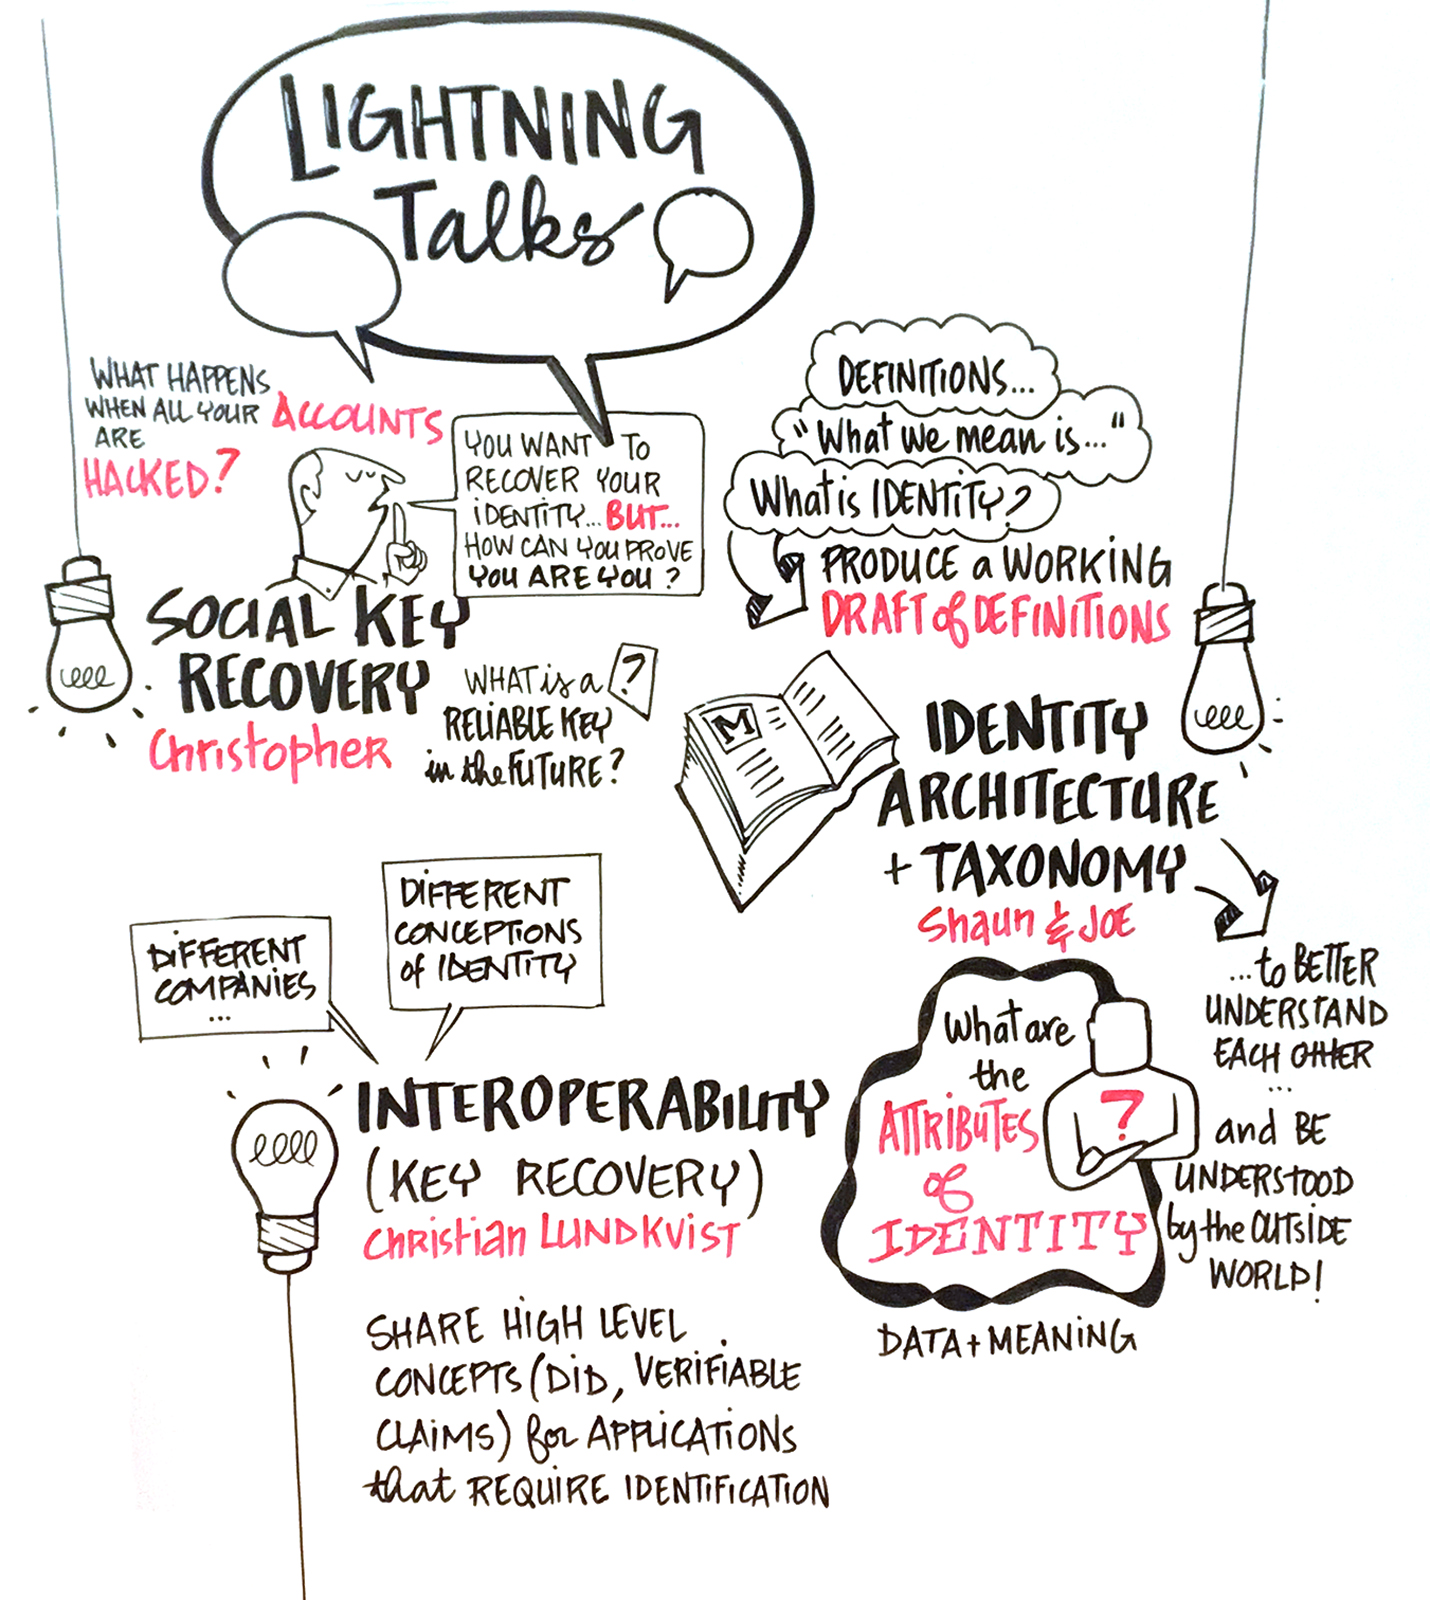 LIGHTNING
Talks
WHAT HAPPENS
WHEN ALL YOUR ACCOUNTS
ARE
HACKED?
YOU WANT TO
RECOVER YOUR
IDENTITY... BUT...
HOW CAN YOU PROVE
YOU ARE YOU?
SOCIAL KEY
RECOVERY
Christopher
WHAT is a ?
RELIABLE KEY
in the FUTURE?
DEFINITIONS...
"What we mean is..."
What is IDENTITY?
PRODUCE a WORKING
DRAFT of DEFINITIONS
M
IDENTITY
ARCHITECTURE
+ TAXONOMY
Shaun & JOE
...to BETTER
UNDERSTAND
EACH OTHER
...
and BE
UNDERSTOOD
by the OUTSIDE
WORLD!
What are
the
ATTRIBUTES
of
IDENTITY
?
DATA + MEANING
DIFFERENT
COMPANIES
...
DIFFERENT
CONCEPTIONS
of IDENTITY
INTEROPERABILITY
(KEY RECOVERY)
Christian LUNDKVIST
SHARE HIGH LEVEL
CONCEPTS (DID, VERIFIABLE
CLAIMS) for APPLICATIONS
that REQUIRE IDENTIFICATION